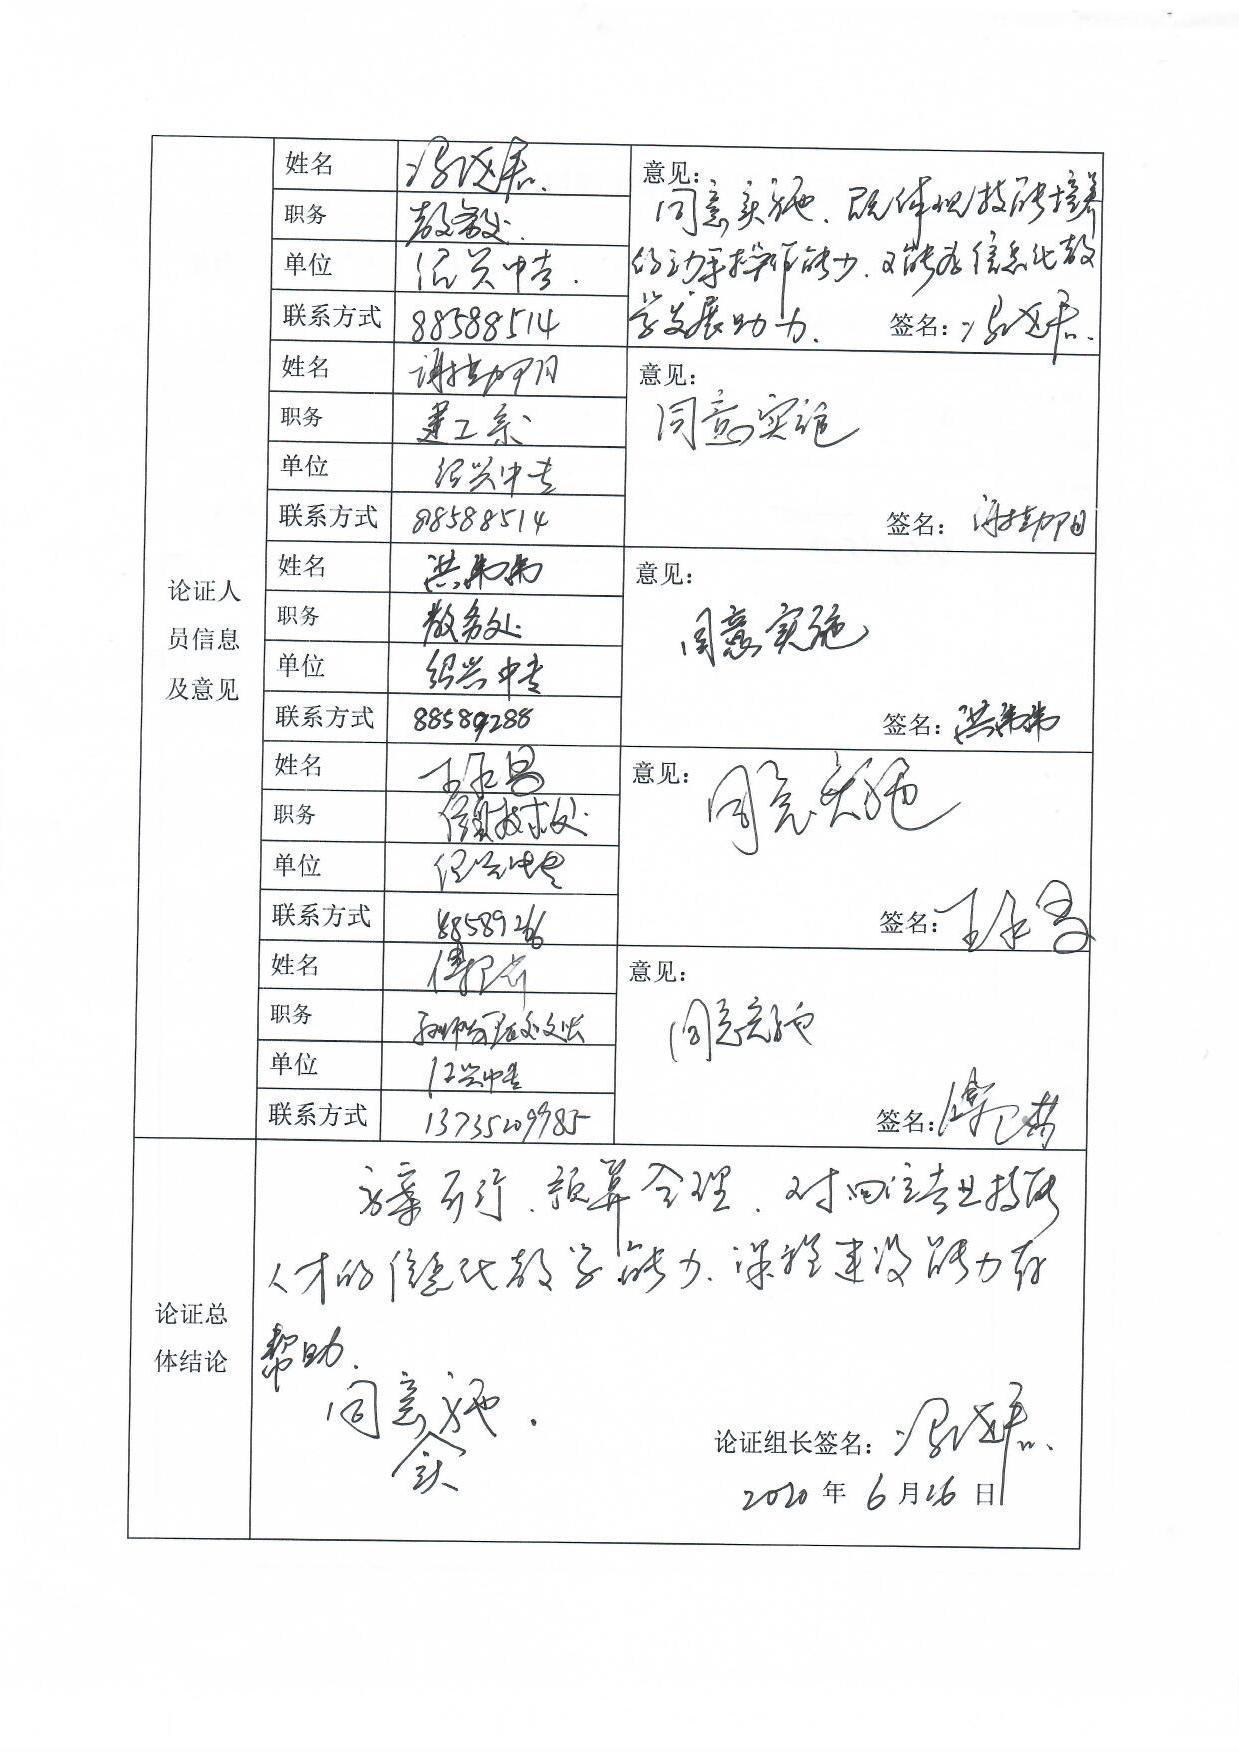 姓名
职务 教务处.
单位 绍兴中专.
联系方式 88588514
意见:
同意实施.既体现技能培养
的动手操作能力.又能为信息化教
学发展助力.
签名:
姓名
职务 建工系
单位 绍兴中专
联系方式 88588514
意见:
同意实施
签名:
姓名 洪弟弟
职务 教务处
单位 绍兴中专
联系方式 88589288
意见:
同意实施
签名: 洪弟弟
论证人
员信息
及意见
姓名 王永昌
职务 信息技术处
单位 绍兴中专
联系方式 88589266
意见:
同意实施
签名: 王永昌
姓名
职务
单位 绍兴中专
联系方式 13735209985
意见:
同意实施
签名:
论证总
体结论
方案可行.预算合理.对回住专业技能
人才的信息化教学能力.课程建设能力有
帮助.
同意实施.
论证组长签名:
2020年6月26日